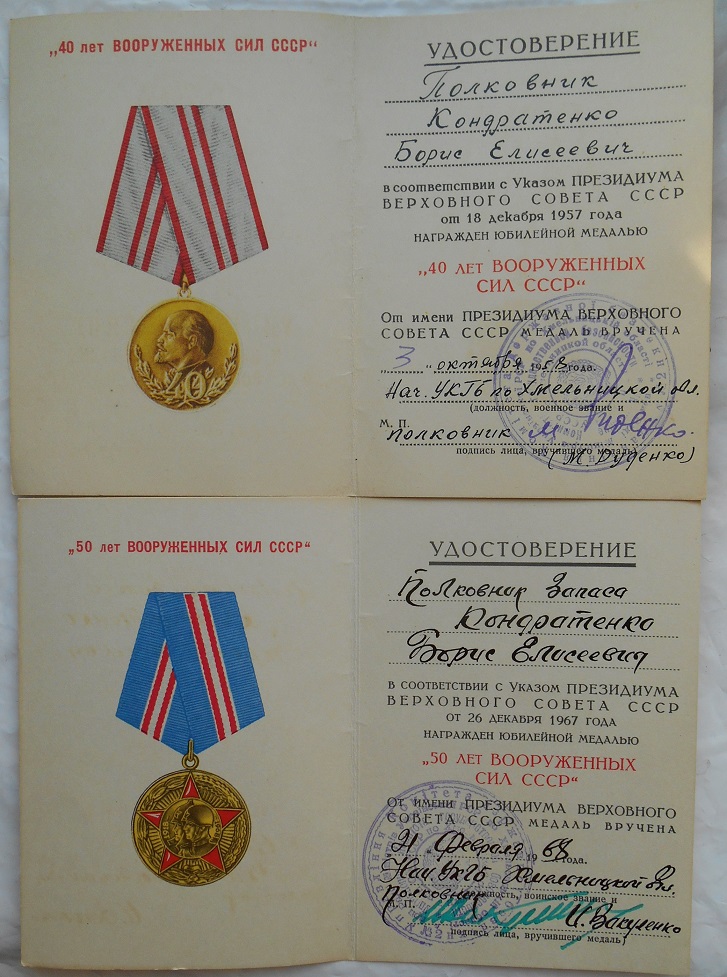 „40 лет ВООРУЖЕННЫХ СИЛ СССР“
40
УДОСТОВЕРЕНИЕ
Полковник
Кондратенко
Борис Елисеевич
в соответствии с Указом ПРЕЗИДИУМА
ВЕРХОВНОГО СОВЕТА СССР
от 18 декабря 1957 года
НАГРАЖДЕН ЮБИЛЕЙНОЙ МЕДАЛЬЮ
„40 ЛЕТ ВООРУЖЕННЫХ
СИЛ СССР“
От имени ПРЕЗИДИУМА ВЕРХОВНОГО
СОВЕТА СССР МЕДАЛЬ ВРУЧЕНА
„3“ октября 1958 года.
Нач. УКГБ по Хмельницкой обл.
(должность, военное звание и
М. П.
полковник
подпись лица, вручившего медаль)
(М. Дуденко)
„50 лет ВООРУЖЕННЫХ СИЛ СССР“
УДОСТОВЕРЕНИЕ
Полковник Запаса
Кондратенко
Борис Елисеевич
В СООТВЕТСТВИИ С УКАЗОМ ПРЕЗИДИУМА
ВЕРХОВНОГО СОВЕТА СССР
ОТ 26 ДЕКАБРЯ 1967 ГОДА
НАГРАЖДЕН ЮБИЛЕЙНОЙ МЕДАЛЬЮ
"50 ЛЕТ ВООРУЖЕННЫХ
СИЛ СССР"
ОТ ИМЕНИ ПРЕЗИДИУМА ВЕРХОВНОГО
СОВЕТА СССР МЕДАЛЬ ВРУЧЕНА
21 Февраля 1968 года.
Нач УКГБ Хмельницкой обл.
Полковник
должность, воинское звание и
М. П.
подпись лица, вручившего медаль)